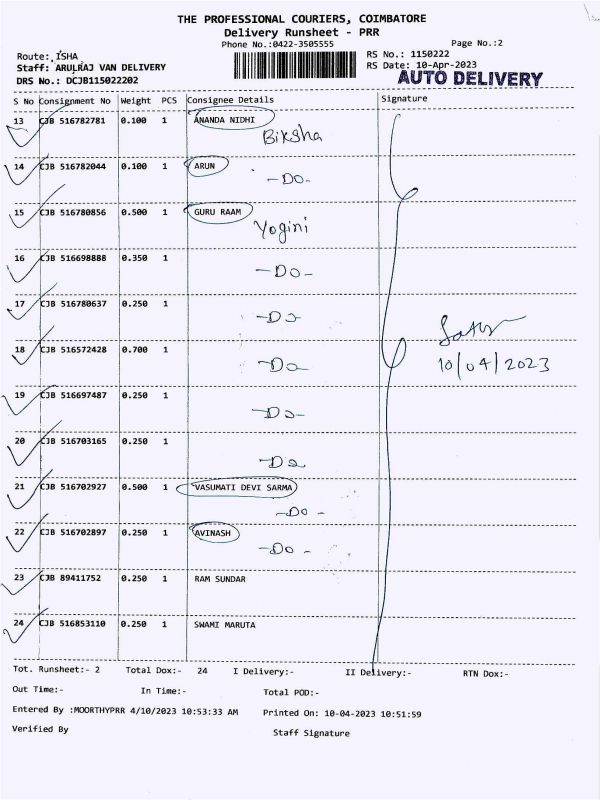 THE PROFESSIONAL COURIERS, COIMBATORE
Delivery Runsheet - PRR
Phone No.:0422-3505555
Page No.:2
Route: ISHA
RS No.: 1150222
Staff: ARULRAJ VAN DELIVERY
RS Date: 10-Apr-2023
DRS No.: DCJB115022202
AUTO DELIVERY
S No Consignment No Weight PCS Consignee Details Signature
13 CJB 516782781 0.100 1 ANANDA NIDHI
Biksha
14 CJB 516782044 0.100 1 ARUN
-Do-
15 CJB 516780856 0.500 1 GURU RAAM
Yogini
16 CJB 516698888 0.350 1
-Do-
17 CJB 516780637 0.250 1
-Do-
18 CJB 516572428 0.700 1
-Do
10/04/2023
19 CJB 516697487 0.250 1
-Do-
20 CJB 516703165 0.250 1
-Do
21 CJB 516702927 0.500 1 VASUMATI DEVI SARMA
-Do-
22 CJB 516702897 0.250 1 AVINASH
-Do-
23 CJB 89411752 0.250 1 RAM SUNDAR
24 CJB 516853110 0.250 1 SWAMI MARUTA
Tot. Runsheet:- 2 Total Dox:- 24 I Delivery:- II Delivery:- RTN Dox:-
Out Time:- In Time:- Total POD:-
Entered By :MOORTHYPRR 4/10/2023 10:53:33 AM Printed On: 10-04-2023 10:51:59
Verified By Staff Signature